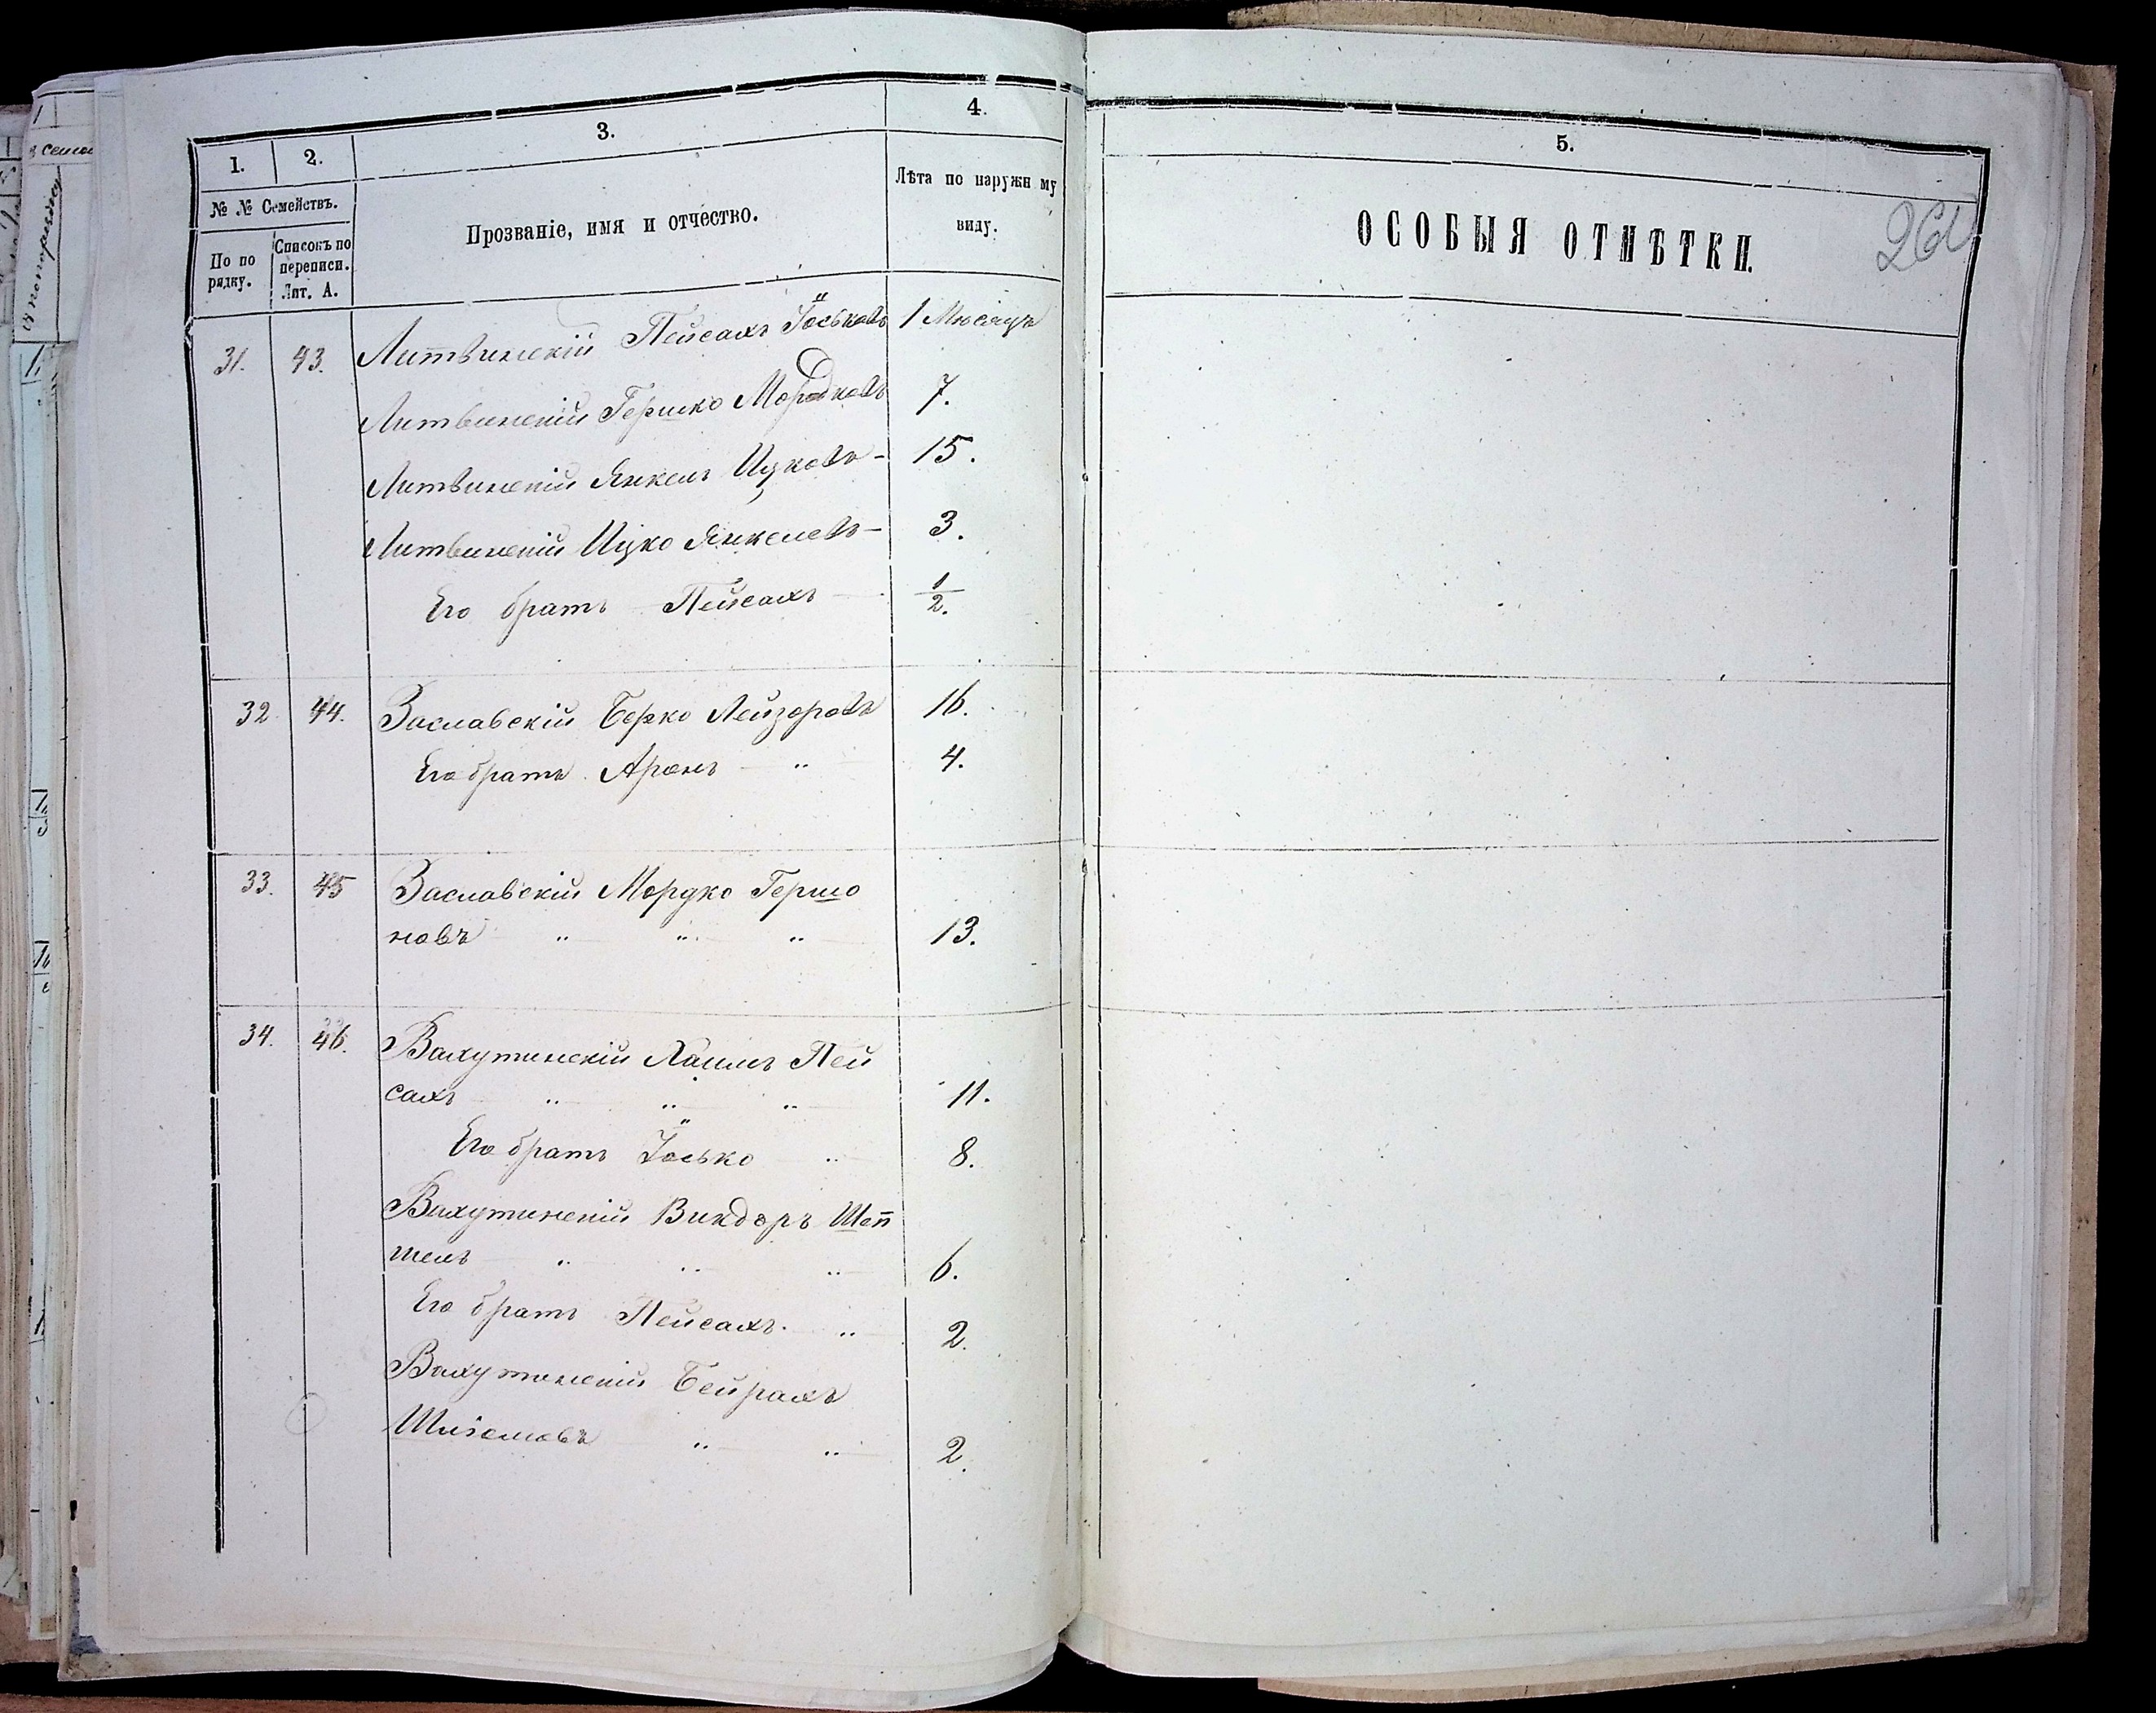 1.
2.
3.
4.
5.
№ № Семействъ.
По по
рядку.
Списокъ по
переписи.
Лит. А.
Прозваніе, имя и отчество.
Лѣта по наружн му
виду.
ОСОБЫЯ ОТМѢТКИ.
31. 43. Литвинскій Пейсахъ Іоськовъ 1 Мѣсяцъ
Литвинскій Гершко Мордковъ 7.
Литвинскій Янкель Ицковъ - 15.
Литвинскій Ицко Янкелевъ - 3.
Его братъ Пейсахъ 1/2.
32 44. Заславскій Берко Лейзоровъ 16.
Его братъ Аронъ " 4.
33. 45 Заславскій Мордко Гершо
новъ " " " 13.
34. 46. Вахутинскій Хаимъ Пей
сахъ " " " 11.
Его братъ Іосько " 8.
Вахутинскій Викдоръ Шеп
телъ " " " 6.
Его братъ Пейсахъ. " 2.
Вахутинскій Бейрахъ
Шліомовъ " " 2.